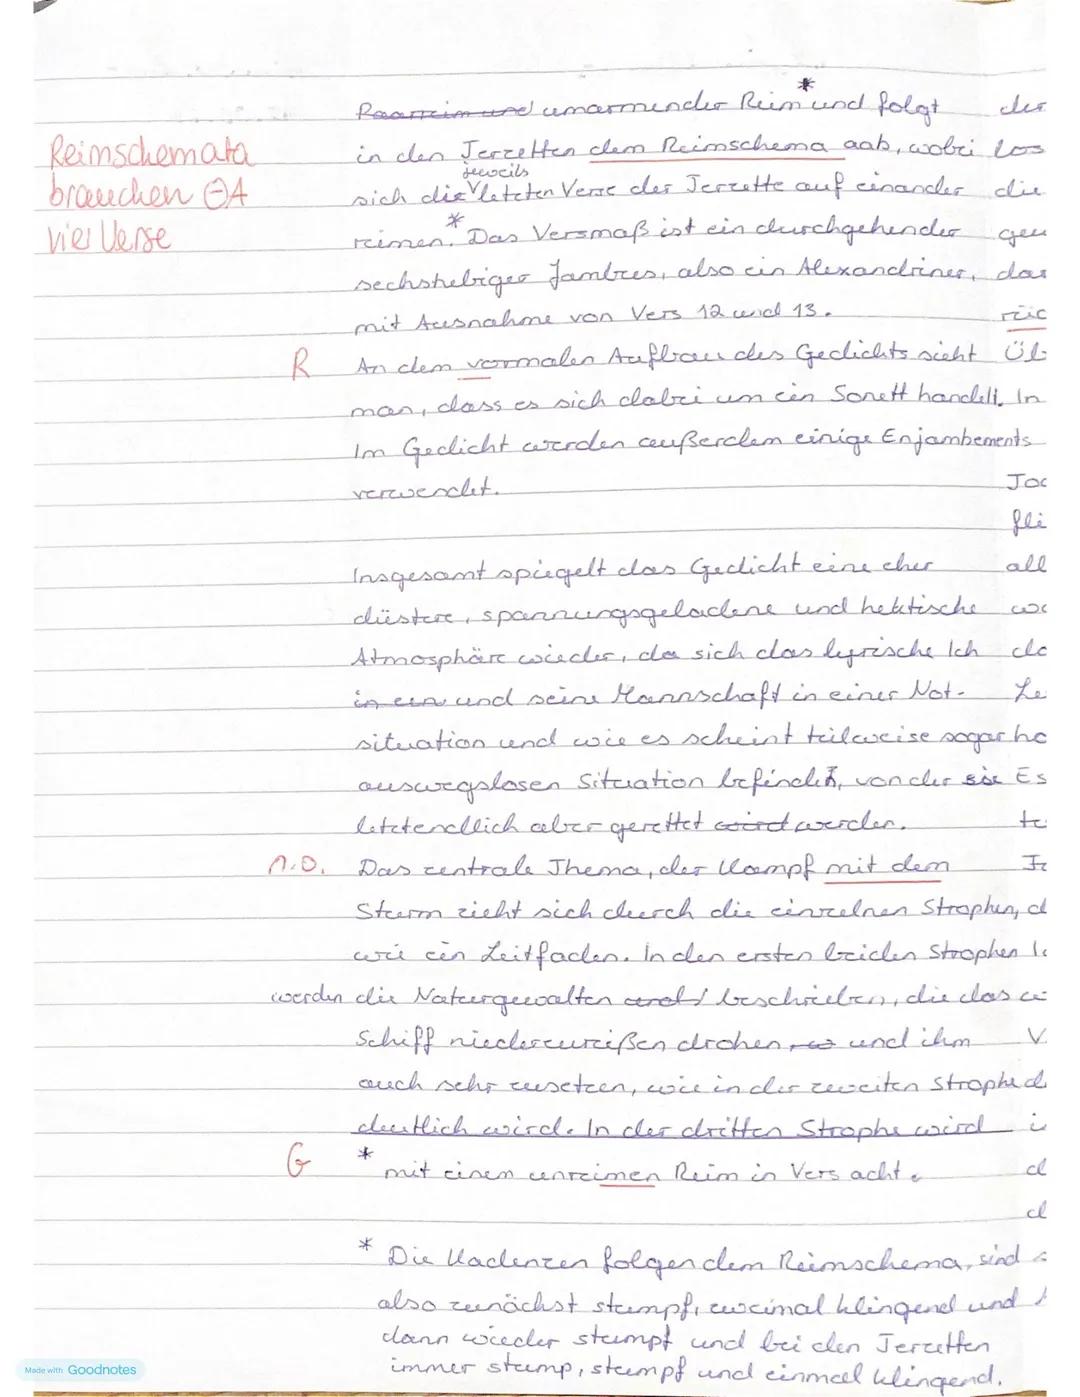 Paarreim und umarmender Reim * und folgt
in den Terzetten dem Reimschema aab, wobei
jeweils
sich die letzten Verse der Terzette auf einander
reimen. * Das Versmaß ist ein durchgehender
sechshebiger Jambus, also ein Alexandriner,
mit Ausnahme von Vers 12 und 13.
Reimschemata
brauchen
vier Verse
R An dem vormalen Aufbau des Gedichts sieht
man, dass es sich dabei um ein Sonett handelt.
Im Gedicht werden außerdem einige Enjambements
verwendet.
Insgesamt spiegelt das Gedicht eine eher
düstere, spannungsgeladene und hektische
Atmosphäre wieder, da sich das lyrische Ich
in ein und seine Mannschaft in einer Not-
situation und wie es scheint teilweise sogar
auswegslosen Situation befindet, von der sie
letztendlich aber gerettet wird werden.
Das zentrale Thema, der Kampf mit dem
Sturm zieht sich durch die einzelnen Strophen,
wie ein Leitfaden. In den ersten beiden Strophen
werden die Naturgewalten und beschrieben, die das
Schiff niederzureißen drohen, und ihm
auch sehr zusetzen, wie in der zweiten Strophe
deutlich wird. In der dritten Strophe wird
G * mit einem unreimen Reim in Vers acht.
* Die Kadenzen folgen dem Reimschema, sind
also zunächst stumpf, zweimal klingend und
dann wieder stumpf und bei den Terzetten
immer stump, stumpf und einmal klingend.
der
los
die
gen
das
rüc
Üb
In
Joc
fli
all
Le
ho
Es
Made with Goodnotes